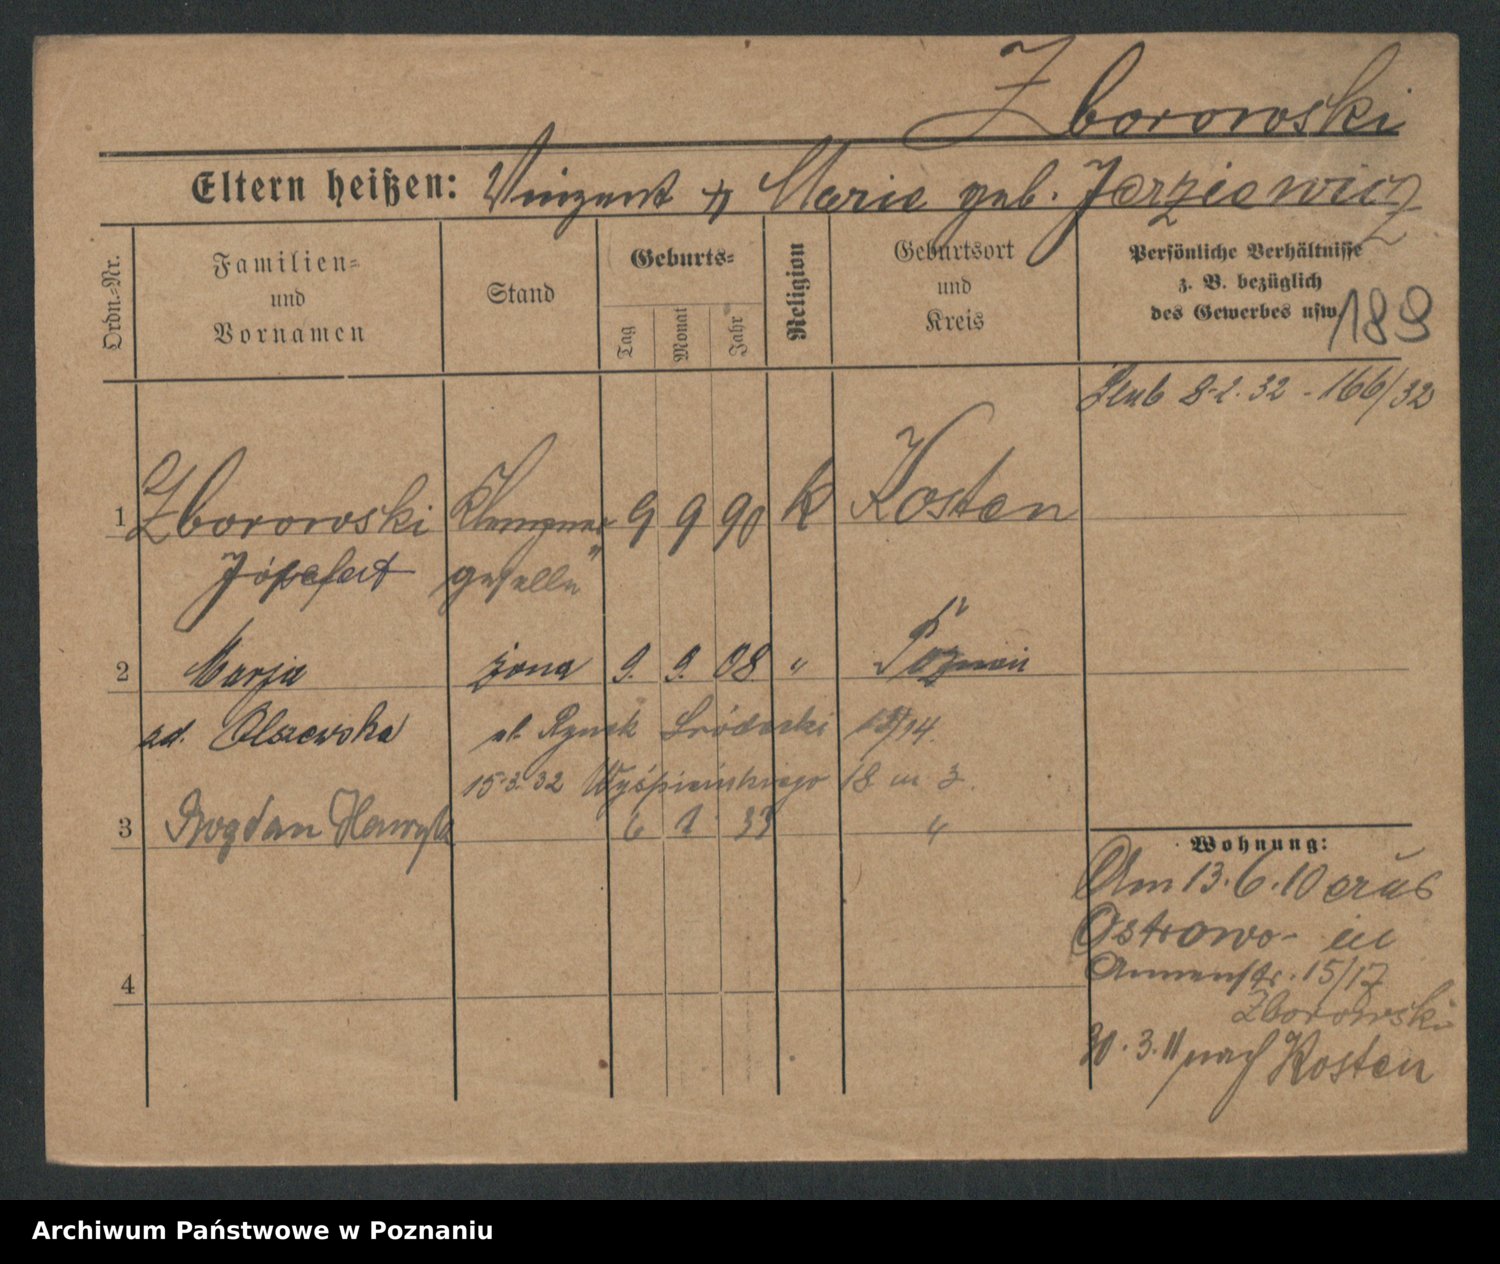 Zborowski
Eltern heißen: Vinzent & Marie geb. Jerziewicz
Ordn.-Nr.
Familien-
und
Vornamen
Stand
Geburts-
Tag
Monat
Jahr
Religion
Geburtsort
und
Kreis
Persönliche Verhältnisse
z. B. bezüglich
des Gewerbes usw.
189
Ślub 8.2.32 - 166/32
1 Zborowski Klempner 9 9 90 k Kosten
Józefat geselle
2 Marja żona 9. 9. 08. " Poznań
zd. Olszewska
ul. Rynek Śródecki 13/14.
15.3.32 Wyśpiańskiego 18 m 3.
3 Bogdan Henryk 6 1 33 "
4
Wohnung:
Am 13.6.10 aus
Ostrowo- in
Annenstr. 15/17
Zborowski
30.3.11 nach Kosten
Archiwum Państwowe w Poznaniu